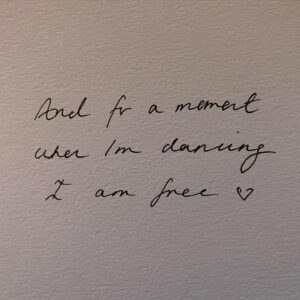 And for a moment
when I'm dancing
I am free ♡